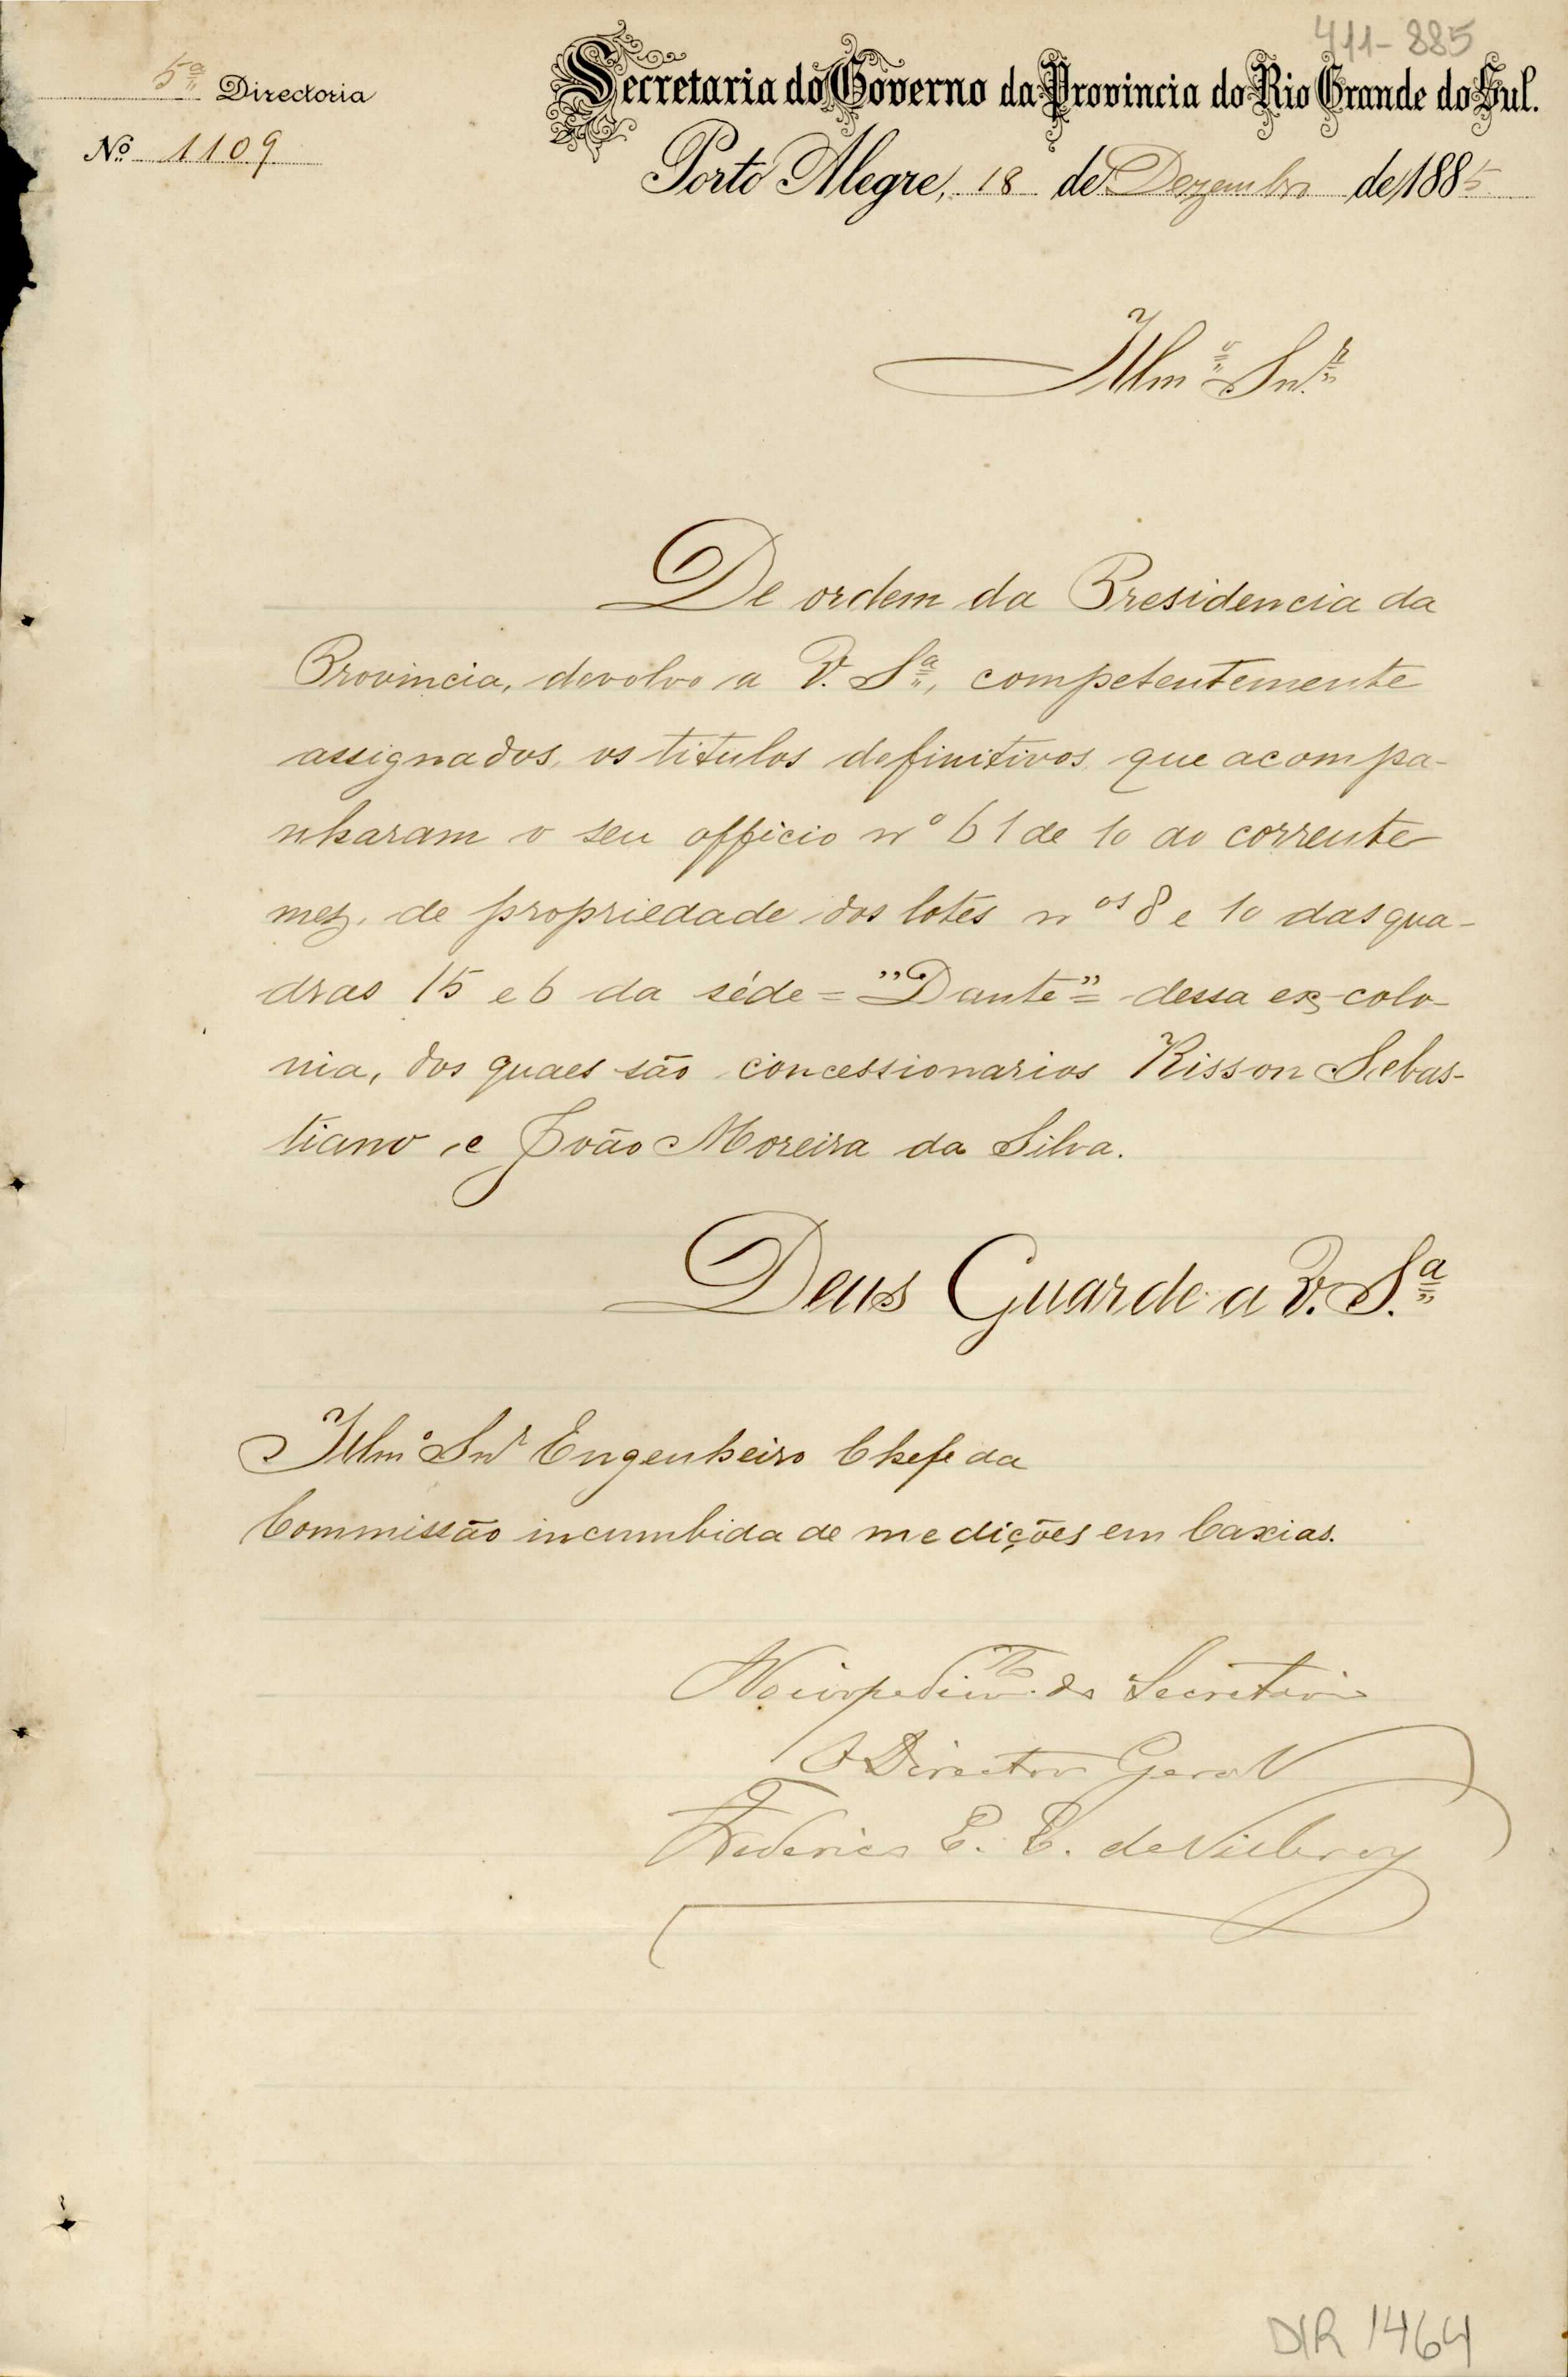 411-885
5ª Directoria
Secretaria do Governo da Provincia do Rio Grande do Sul.
Nº 1109
Porto Alegre, 18 de Dezembro de 1885
Illmº Snr.
De ordem da Presidencia da
Provincia, devolvo a V. Sª, competentemente
assignados, os titulos definitivos que acompa-
nharam o seu officio nº 61 de 10 do corrente
mez, de propriedade dos lotes nos 8 e 10 das qua-
dras 15 e 6 da séde = "Dante" = dessa ex-colo-
nia, dos quaes são concessionarios Risson Sebas-
tiano e João Moreira da Silva.
Deus Guarde a V. Sª
Illmº Snr Engenheiro Chefe da
Commissão incumbida de medições em Caxias.
No impedimto do Secretario
O Director Geral
Frederico E. E. de Villeroy
DIR 1464